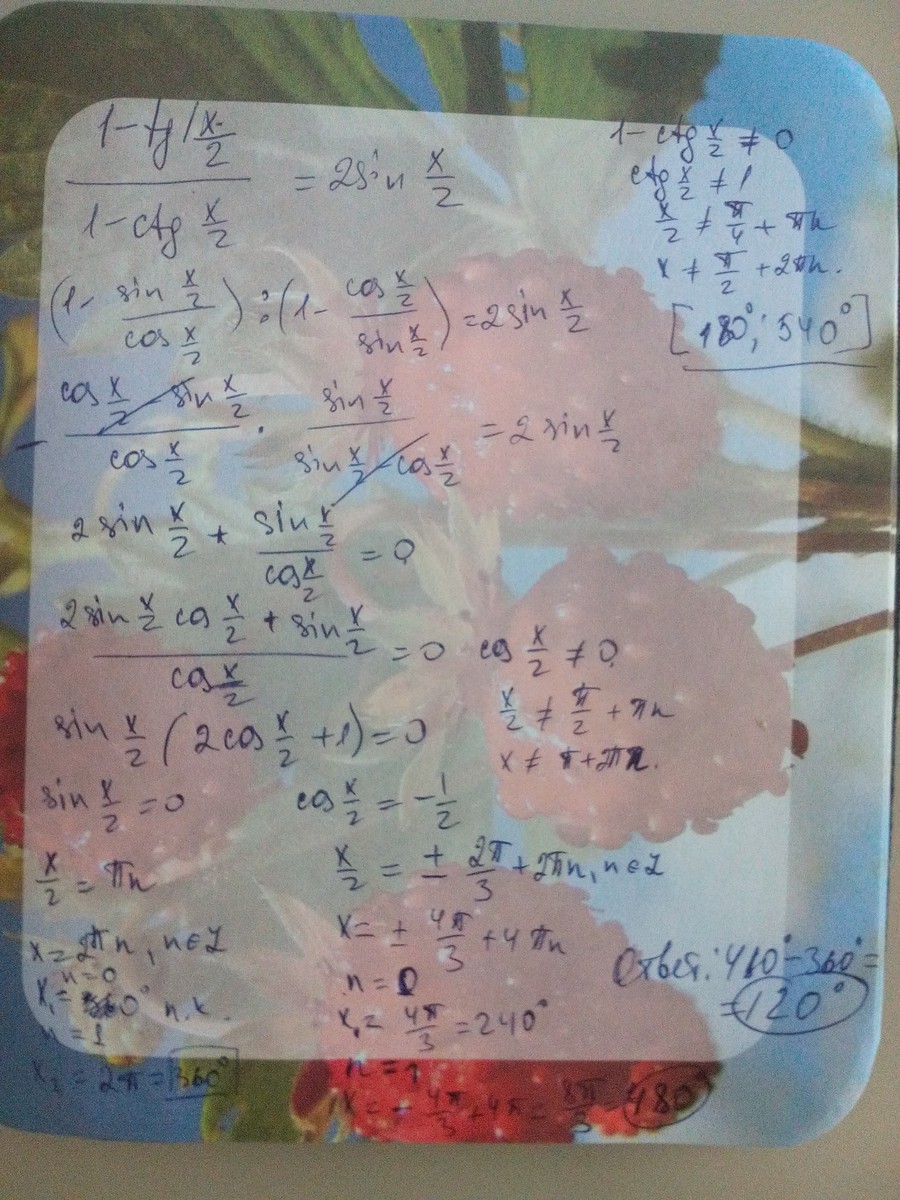 (1 - tg x/2) / (1 - ctg x/2) = 2 sin x/2
1 - ctg x/2 ≠ 0
ctg x/2 ≠ 1
x/2 ≠ π/4 + πn
x ≠ π/2 + 2πn.
[180°; 540°]
(1 - (sin x/2)/(cos x/2)) : (1 - (cos x/2)/(sin x/2)) = 2 sin x/2
- (cos x/2 - sin x/2)/(cos x/2) · (sin x/2)/(sin x/2 - cos x/2) = 2 sin x/2
2 sin x/2 + (sin x/2)/(cos x/2) = 0
(2 sin x/2 cos x/2 + sin x/2)/(cos x/2) = 0
cos x/2 ≠ 0
x/2 ≠ π/2 + πn
x ≠ π + 2πn.
sin x/2 (2cos x/2 + 1) = 0
sin x/2 = 0
x/2 = πn
x = 2πn, n ∈ Z
n = 0
x₁ = 0° п.к.
n = 1
x₂ = 2π = 360°
cos x/2 = - 1/2
x/2 = ± 2π/3 + 2πn, n ∈ Z
x = ± 4π/3 + 4πn
n = 0
x₁ = 4π/3 = 240°
n = 1
x = - 4π/3 + 4π = 8π/3 = 480°
Ответ: 480° - 360° =
= 120°